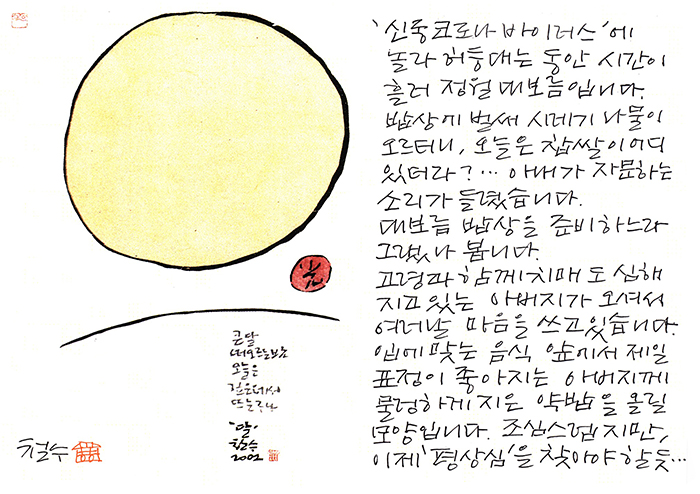 큰 달
떠오르는
오늘은
뜨는구나
'달'
철수
2002
철수
'신종코로나 바이러스'에
놀라 허둥대는 동안 시간이
흘러 정월 대보름입니다.
밥상에 벌써 시레기 나물이
오르더니, 오늘은 찹쌀이 어디
있더라?… 아내가 자문하는
소리가 들렸습니다.
대보름 밥상을 준비하느라
그랬나 봅니다.
고령과 함께 치매도 심해
지고 있는 아버지가 오셔서
여러날 마음을 쓰고 있습니다.
입에 맞는 음식 앞에서 제일
표정이 좋아지는 아버지께
물렁하게 지은 약밥을 올릴
모양입니다. 조심스럽지만,
이제 '평상심'을 찾아야 할 듯…